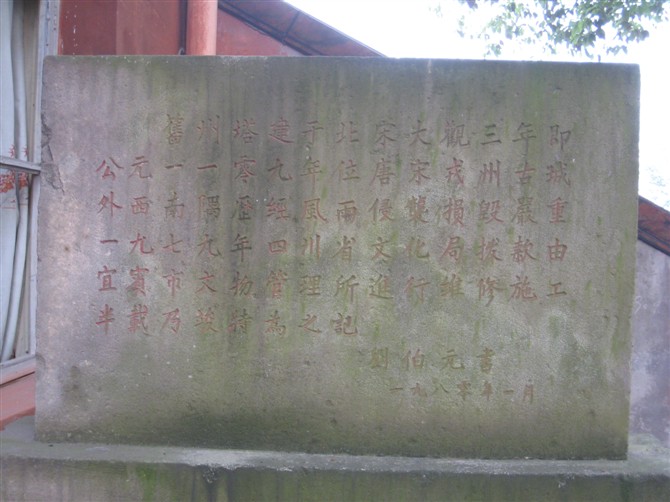 舊州塔建于北宋大觀三年即
公元一一零九年位唐宋戎州古城
外西南隅歷經風雨侵襲損毀嚴重
一九七九年四川省文化局撥款由
宜賓市文物管理所進行維修施工
半載乃竣特為之記
劉伯元書
一九八零年一月